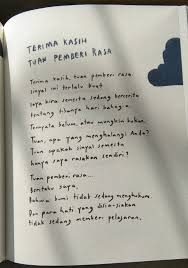 TERIMA KASIH
TUAN PEMBERI RASA
Terima kasih, tuan pemberi rasa
sinyal ini terlalu kuat
saya kira semesta sedang bercerita
tentang hilangnya hari bahagia.
Ternyata belum, atau mungkin bukan.
Tuan, apa yang menghalangi Anda?
Tuan apakah sinyal semesta
hanya saya rasakan sendiri?
Tuan pemberi rasa...
Beritahu saya,
Bahwa bumi tidak sedang menghukum,
Dan para hati yang disia-siakan
tidak sedang memberi pelajaran.